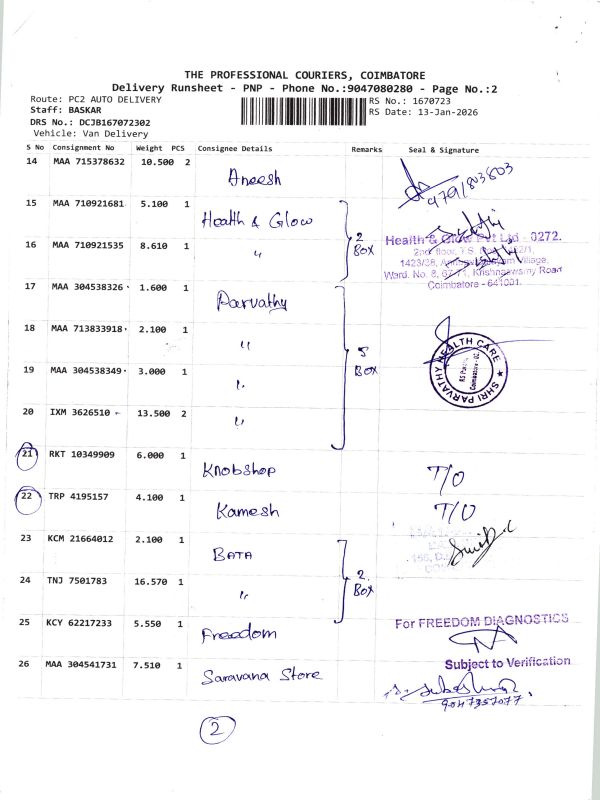 THE PROFESSIONAL COURIERS, COIMBATORE
Delivery Runsheet - PNP - Phone No.:9047080280 - Page No.:2
Route: PC2 AUTO DELIVERY
Staff: BASKAR
DRS No.: DCJB167072302
Vehicle: Van Delivery
RS No.: 1670723
RS Date: 13-Jan-2026
S No Consignment No Weight PCS Consignee Details Remarks Seal & Signature
14 MAA 715378632 10.500 2 Aneesh 979/803803
15 MAA 710921681 5.100 1 Health & Glow
2 BOX
16 MAA 710921535 8.610 1 "
Health & Glow Pvt Ltd - 0272.
2nd floor, T.S.
1423/38, Village,
Ward. No. 8, Krishnaswamy Road
Coimbatore - 641001.
17 MAA 304538326 1.600 1 Parvathy
18 MAA 713833918 2.100 1 "
5 BOX
SHRI PARVATHY HEALTH CARE
19 MAA 304538349 3.000 1 "
20 IXM 3626510 13.500 2 "
21 RKT 10349909 6.000 1 Knobshop T/O
22 TRP 4195157 4.100 1 Kamesh T/O
23 KCM 21664012 2.100 1 BATA
2 BOX
24 TNJ 7501783 16.570 1 "
25 KCY 62217233 5.550 1 Freedom
For FREEDOM DIAGNOSTICS
Subject to Verification
26 MAA 304541731 7.510 1 Saravana Store
9047357077
2